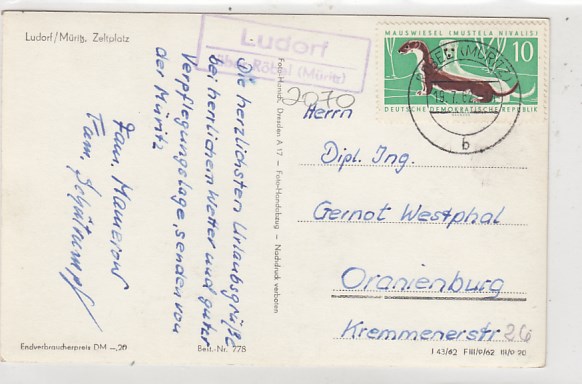 Ludorf/Müritz. Zeltplatz
Ludorf
über Röbel (Müritz)
MAUSWIESEL (MUSTELA NIVALIS)
10
DEUTSCHE DEMOKRATISCHE REPUBLIK
(MÜRITZ)
b
2070
Die herzlichsten Urlaubsgrüße
bei herrlichem Wetter und guter
Verpflegungslage, senden von
der Müritz
Fam. Mamerow
Fam.
Foto-Handel, Dresden A 17 — Foto-Handabzug — Nachdruck verboten
Herrn
Dipl. Ing.
Gernot Westphal
Oranienburg
Kremmenerstr 26
Endverbraucherpreis DM —,20
Best.-Nr. 778
I 43/62 F III/9/62 III/9 20